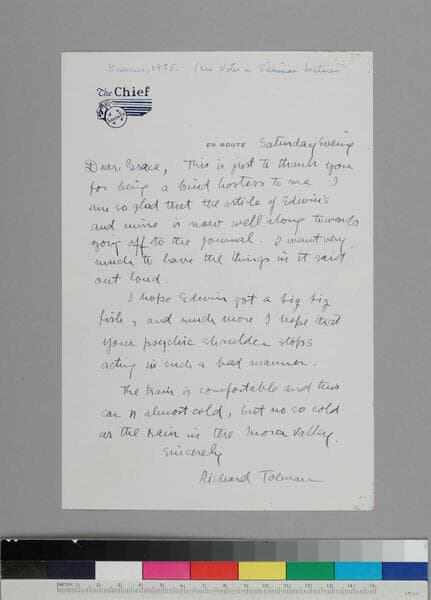 Summer, 1935. (see Notes in Silliman Lectures)
The Chief
EN ROUTE Saturday evening
Dear Grace, This is just to thank you
for being a kind hostess to me. I
am so glad that the article of Edwin's
and mine is now well along towards
going off to the Journal. I want very
much to have the things in it said
out loud.
I hope Edwin got a big big
fish, and much more I hope that
your psychic shoulder stops
acting in such a bad manner.
The train is comfortable and this
car is almost cold, but no so cold
as the rain in the Mora Valley.
Sincerely
Richard Tolman